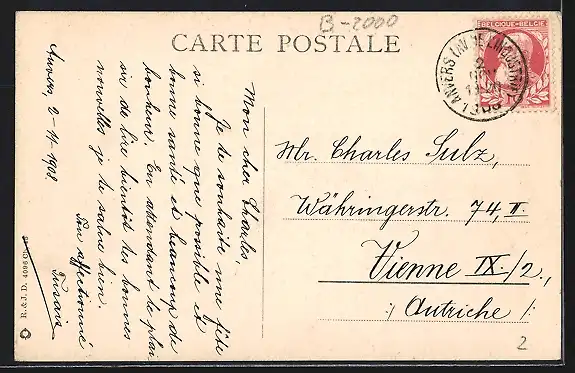 B-2000
CARTE POSTALE
BELGIQUE-BELGIE
Anvers, 2-11-1908
Mon cher Charles,
Je te souhaite une fête
si bonne que possible et
bonne santé et beaucoup de
bonheur. En attendant le plai
sir de lire bientôt tes bonnes
nouvelles je te salue bien.
Ton affectionné
Mr. Charles Sulz,
Währingerstr. 74, II.
Vienne IX./2,
/: Autriche /:
R. & J. D.
2